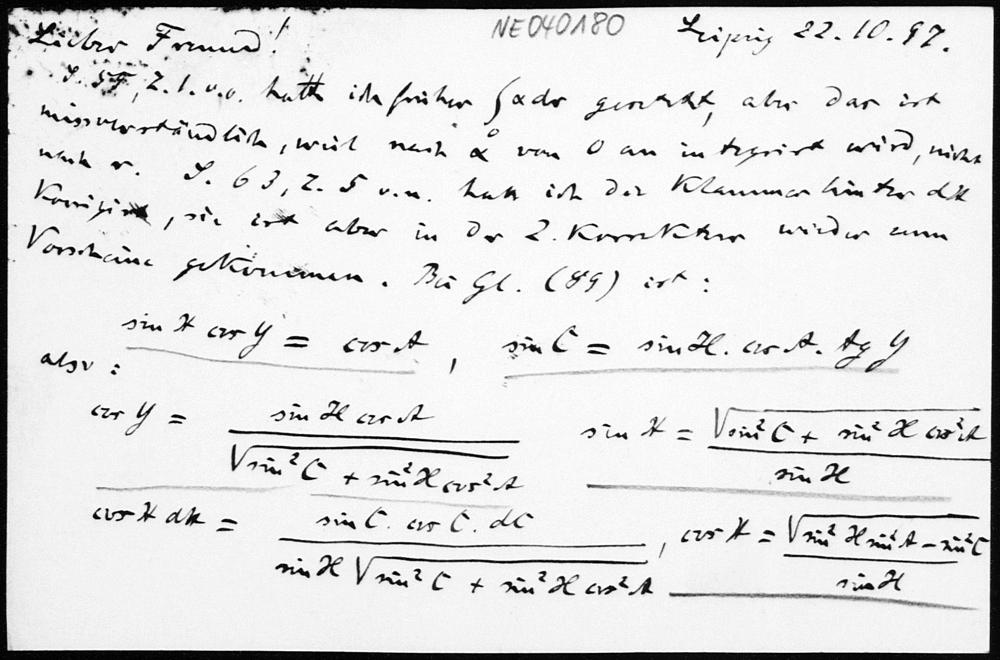 NE040180
Lieber Freund! Leipzig 22.10.97.
S. 59, Z. 1. v. o. hatte ich früher ∫αdr gesetzt, aber das ist
missverständlich, weil nach α von 0 an integriert wird, nicht
nach r. S. 63, Z. 5 v. u. hatte ich die Klammer hinter dX
korrigirt, sie ist aber in der 2. Korrektur wieder zum
Vorscheine gekommen. Bei Gl. (89) ist:
sin X cos Y = cos A, sin C = sin H. cos A. tg Y
also:
cos Y = sin H cos A / √(sin² C + sin² H cos² A) sin X = √(sin² C + sin² H cos² A) / sin H
cos X dX = sin C. cos C. dC / sin H √(sin² C + sin² H cos² A), cos X = √(sin² H sin² A − sin² C) / sin H